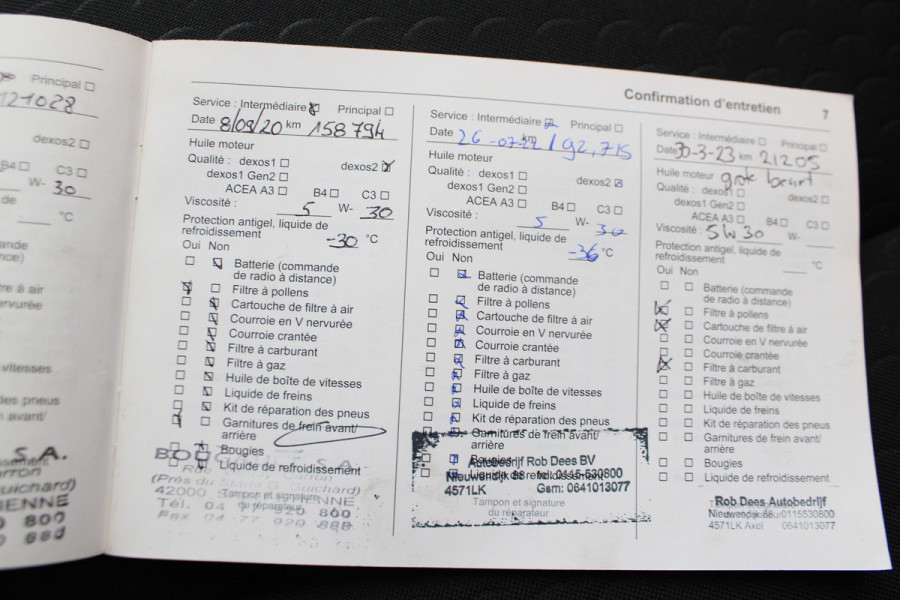 Principal ☐
121028
dexos2 ☐
B4 ☐ C3 ☐
W- 30
°C
vitesses
des pneus
avant/
S.A.
800
Confirmation d'entretien 7
Service : Intermédiaire ☒ Principal ☐
Date 8/09/20 km 158794
Huile moteur
Qualité : dexos1 ☐ dexos2 ☒
dexos1 Gen2 ☐
ACEA A3 ☐ B4 ☐ C3 ☐
Viscosité : 5 W- 30
Protection antigel, liquide de
refroidissement -30 °C
Oui Non
☐ ☒ Batterie (commande
de radio à distance)
☒ ☐ Filtre à pollens
☐ ☒ Cartouche de filtre à air
☐ ☒ Courroie en V nervurée
☐ ☒ Courroie crantée
☐ ☒ Filtre à carburant
☐ ☒ Filtre à gaz
☐ ☒ Huile de boîte de vitesses
☐ ☒ Liquide de freins
☐ ☒ Kit de réparation des pneus
☒ ☐ Garnitures de frein avant/
arrière
Bougies
Liquide de refroidissement
(Près du Stade G. Guichard)
42000
Tampon et signature
du réparateur
Service : Intermédiaire ☒ Principal ☐
Date 26-07-22 km 192,715
Huile moteur
Qualité : dexos1 ☐ dexos2 ☒
dexos1 Gen2 ☐
ACEA A3 ☐ B4 ☐ C3 ☐
Viscosité : 5 W- 30
Protection antigel, liquide de
refroidissement -36 °C
Oui Non
☐ ☒ Batterie (commande
de radio à distance)
☐ ☒ Filtre à pollens
☐ ☒ Cartouche de filtre à air
☐ ☒ Courroie en V nervurée
☐ ☒ Courroie crantée
☐ ☒ Filtre à carburant
☐ ☒ Filtre à gaz
☐ ☒ Huile de boîte de vitesses
☐ ☒ Liquide de freins
☐ ☒ Kit de réparation des pneus
Garnitures de frein avant/
arrière
Bougies
Autobedrijf Rob Dees BV
Liquide de refroidissement
Nieuwendijk 88 tel. 0115-530800
4571LK Gsm: 0641013077
Tampon et signature
du réparateur
Service : Intermédiaire ☐ Principal ☐
Date 30-3-23 km 21205
Huile moteur grote beurt
Qualité : dexos1 ☐ dexos2 ☐
dexos1 Gen2 ☐
ACEA A3 ☐ B4 ☐ C3 ☐
Viscosité : 5W30 W-
Protection antigel, liquide de
refroidissement °C
Oui Non
☐ ☐ Batterie (commande
de radio à distance)
☒ ☐ Filtre à pollens
☒ ☐ Cartouche de filtre à air
☐ ☐ Courroie en V nervurée
☐ ☐ Courroie crantée
☒ ☐ Filtre à carburant
☐ ☐ Filtre à gaz
☐ ☐ Huile de boîte de vitesses
☐ ☐ Liquide de freins
☐ ☐ Kit de réparation des pneus
☐ ☐ Garnitures de frein avant/
arrière
☐ ☐ Bougies
☐ ☐ Liquide de refroidissement
Rob Dees Autobedrijf
Nieuwendijk 88 0115530800
4571LK Axel 0641013077